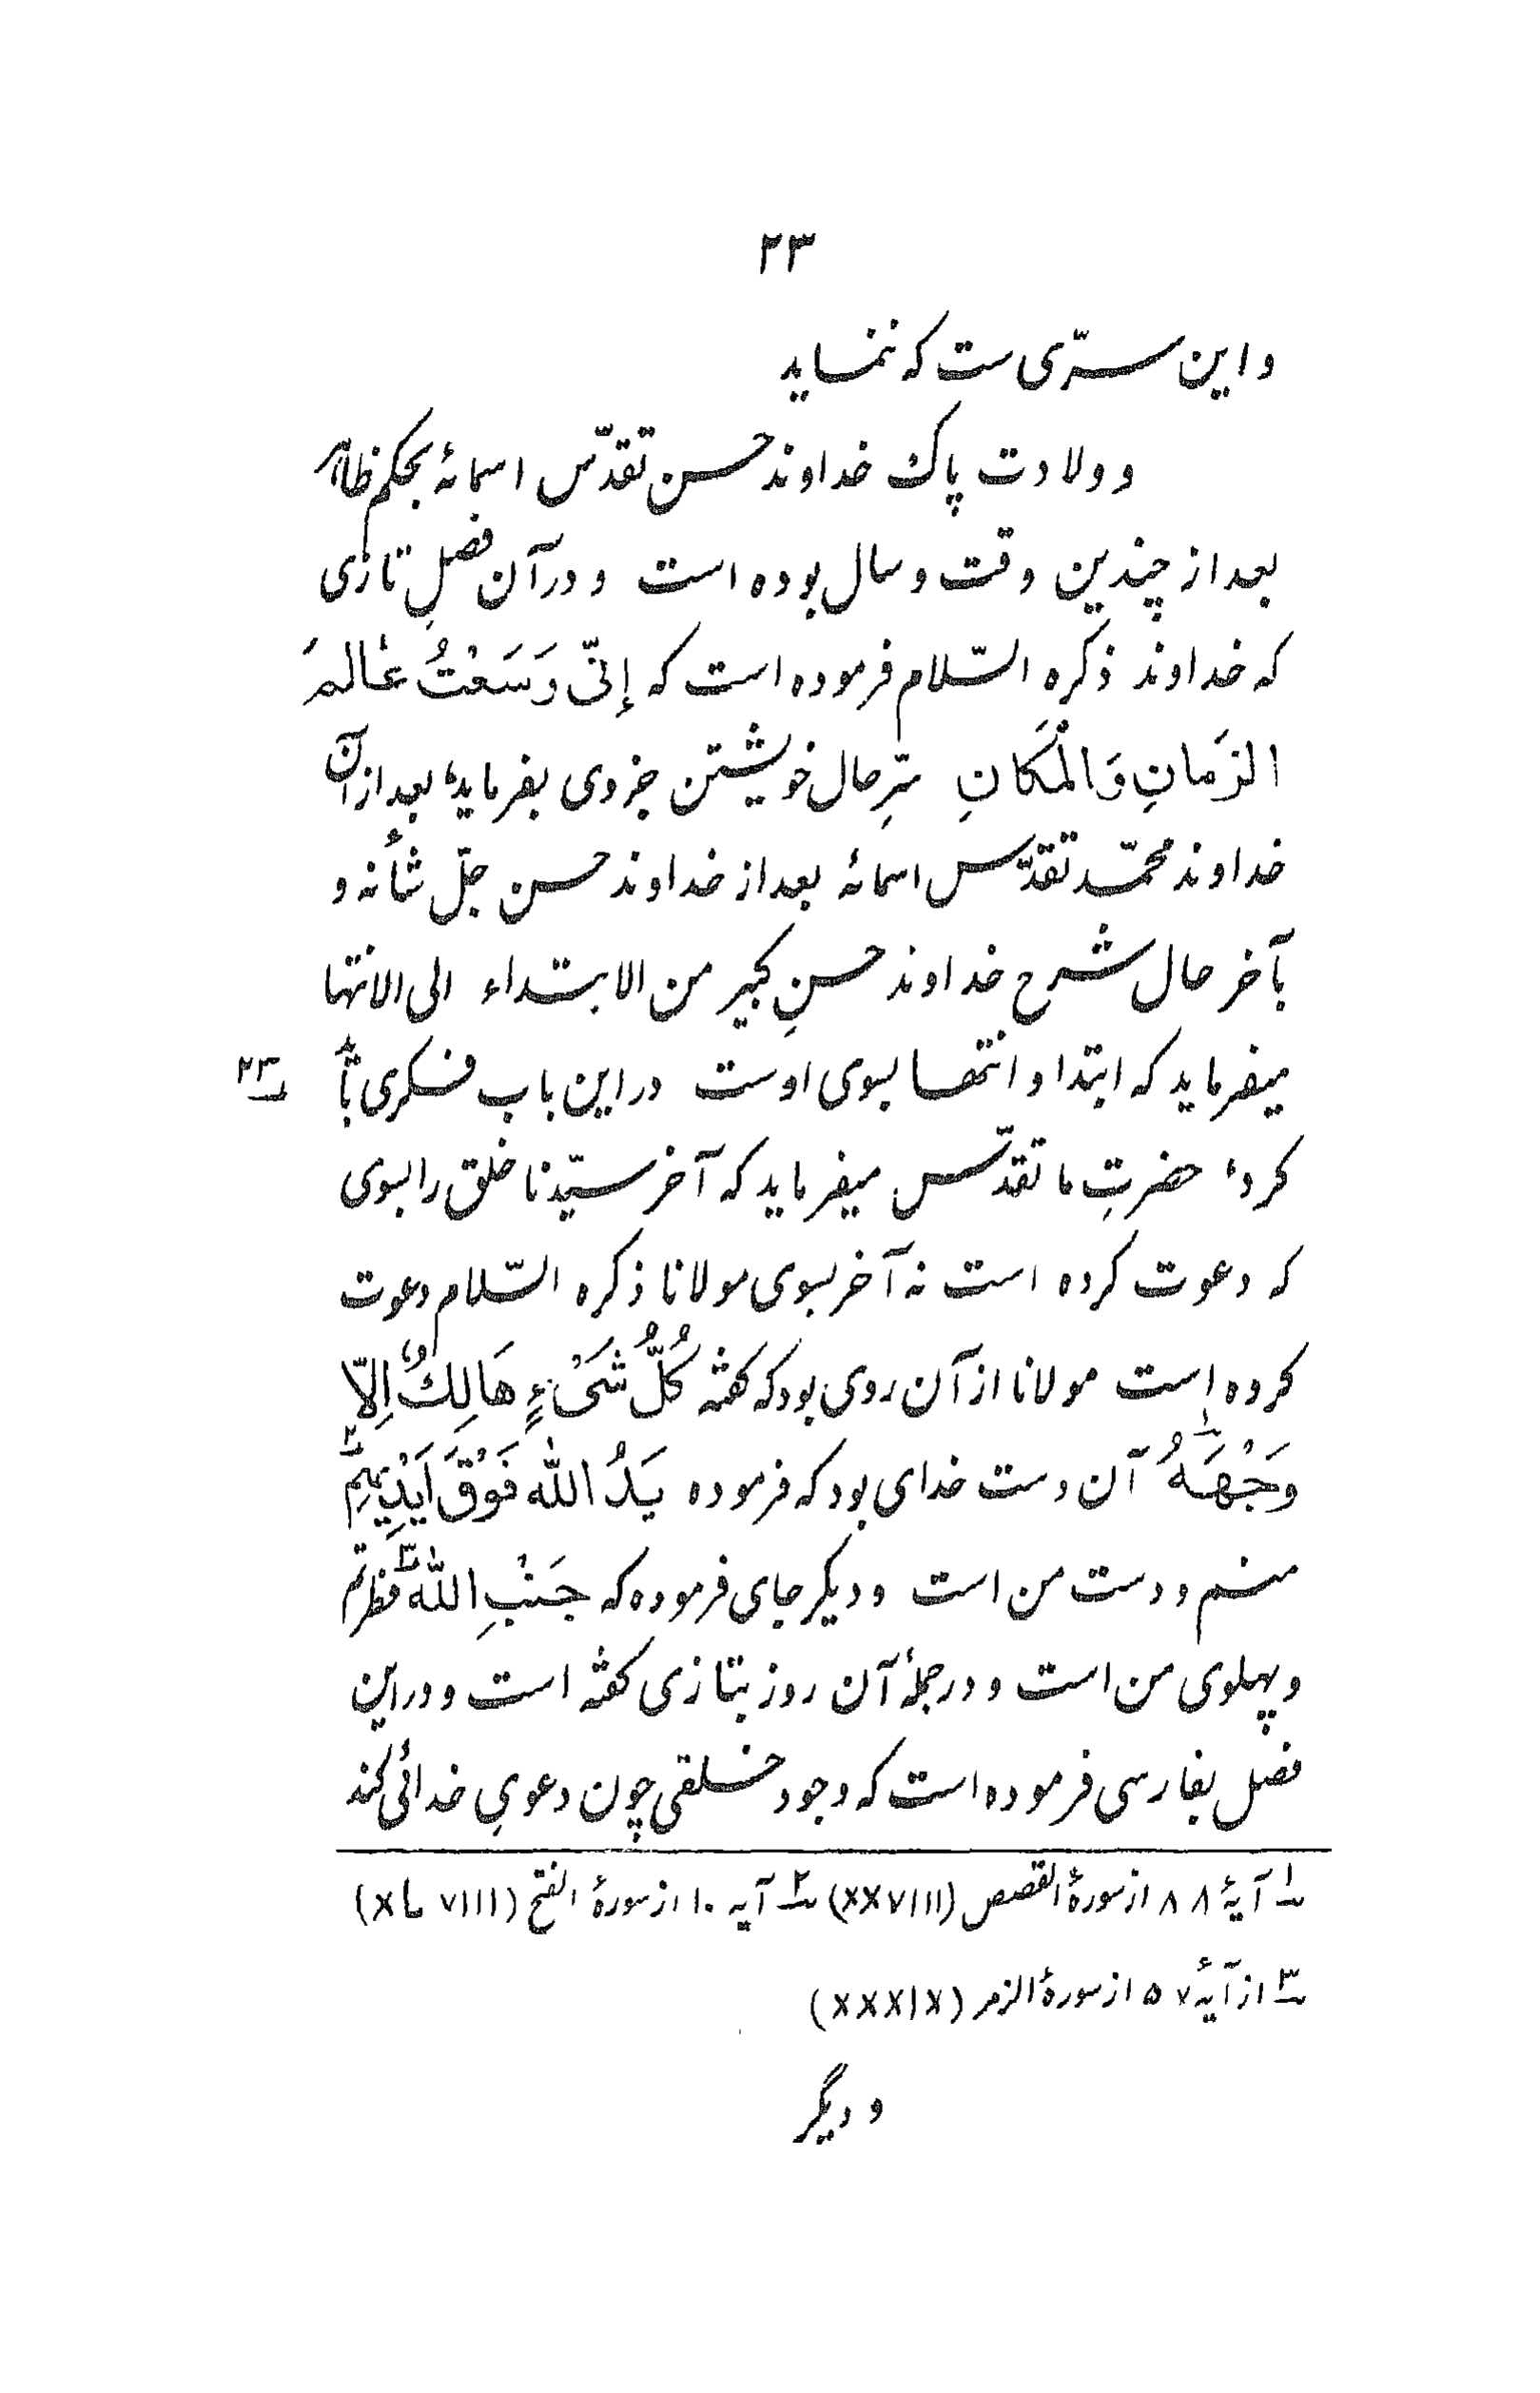 ۲۳
و این سرّی ست که ننماید
و ولادت پاک خداوند حسن تقدّس اسمائهٔ بحکم ظاهر
بعد از چندین وقت و سال بوده است و در آن فصلِ تازی
که خداوند ذکره السّلام فرموده است که إنّی وَسَعْتُ عَالمَ
الزَمانِ وَالْمَکَانِ سِرِّ حال خویشتن جزوی بفرماید، بعد از آن
خداوند محمّد تقدّس اسمائهٔ بعد از خداوند حسن جلّ شأنه و
بآخر حال شرح خداوند حسنِ کبیر من الابتداء الی الانتها
میفرماید که ابتدا و انتها بسوی اوست در این باب فکری باید ۲۳
کرد، حضرتِ ما تقدّس میفرماید که آخر سیّدنا خلق را بسوی
که دعوت کرده است نه آخر بسوی مولانا ذکره السّلام دعوت
کرده است مولانا از آن روی بود که گفته کُلُّ شَیْءٍ هَالِكٌ اِلّا
وَجْهَهُ ۱ آن دست خدای بود که فرموده یَدُ اللّٰه فَوْقَ اَیْدِیهِمْ ۲
منم و دست من است و دیکر جای فرموده که جَنْبِ اللّٰه ۳
و پهلوی من است و در جملهٔ آن روز بتازی کفته است و در این
فصل بفارسی فرموده است که وجود خلقی چون دعویِ خدائی کند
۱ آیهٔ ۸۸ از سورهٔ القصص (XXVIII) ۲ آیه ۱۰ از سورهٔ الفتح (XLVIII)
۳ از آیهٔ ۵۷ از سورهٔ الزمر (XXXIX)
و دیگر